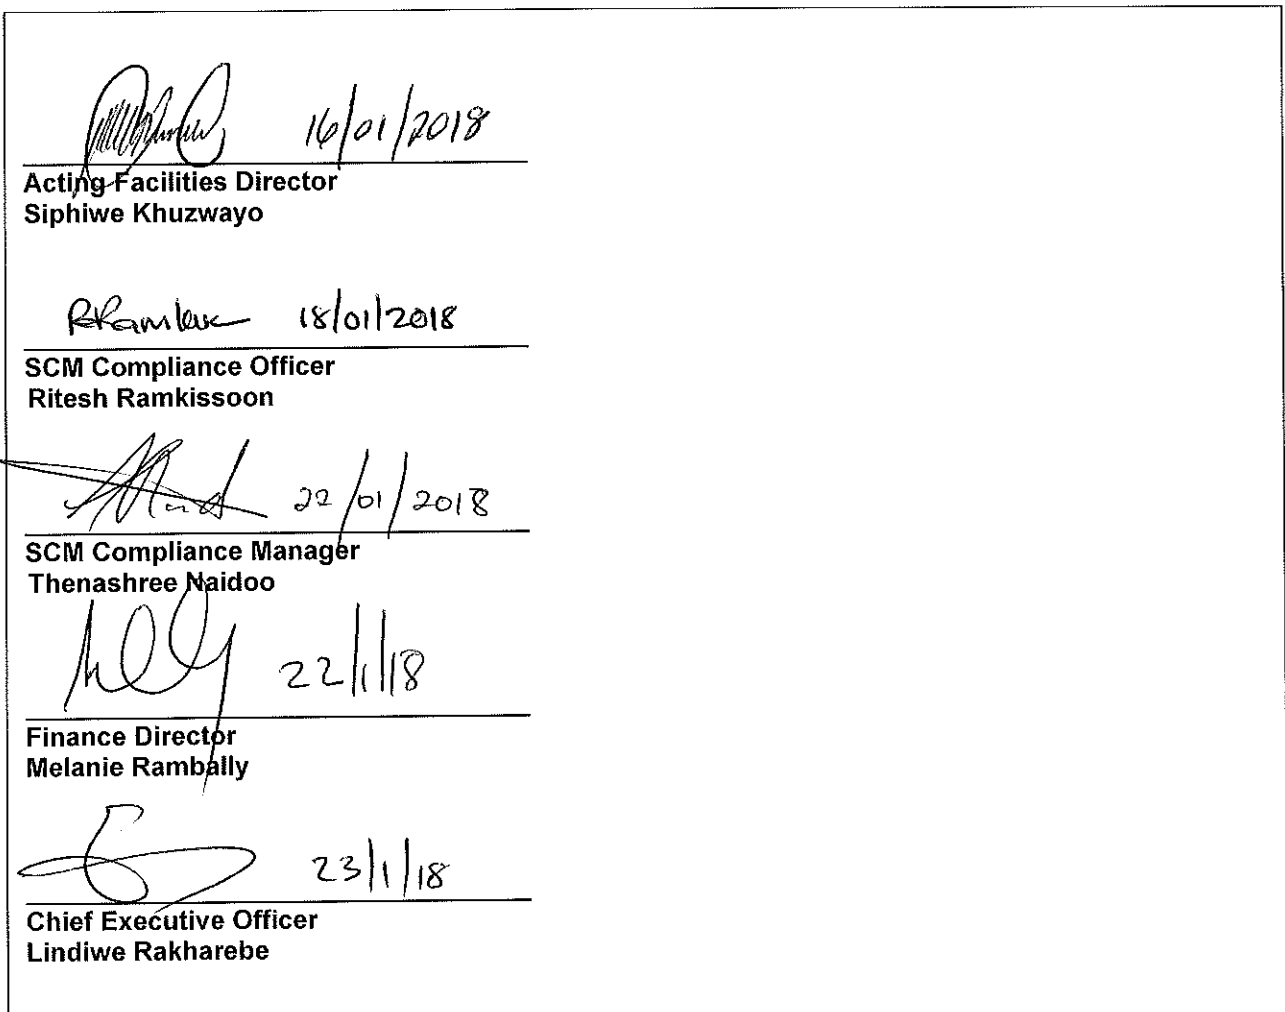 16/01/2018
Acting Facilities Director
Siphiwe Khuzwayo
18/01/2018
SCM Compliance Officer
Ritesh Ramkissoon
22/01/2018
SCM Compliance Manager
Thenashree Naidoo
22/1/18
Finance Director
Melanie Rambally
23/1/18
Chief Executive Officer
Lindiwe Rakharebe